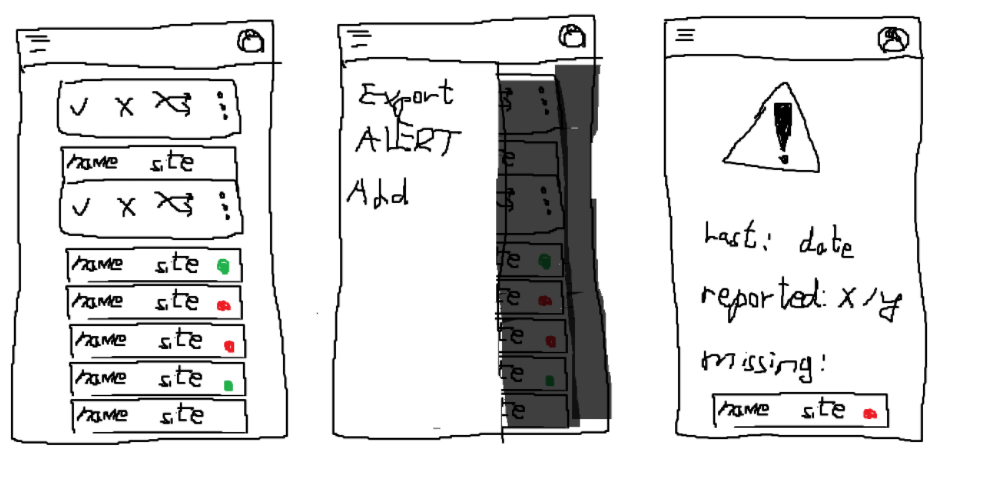 name site
name site
name site
name site
name site
name site
Export
ALERT
Add
te
te
te
te
te
Last: date
reported: x/y
missing:
name site